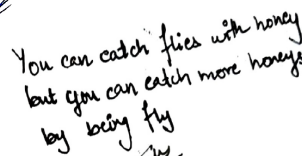 You can catch flies with honey
but you can catch more honeys
by being fly